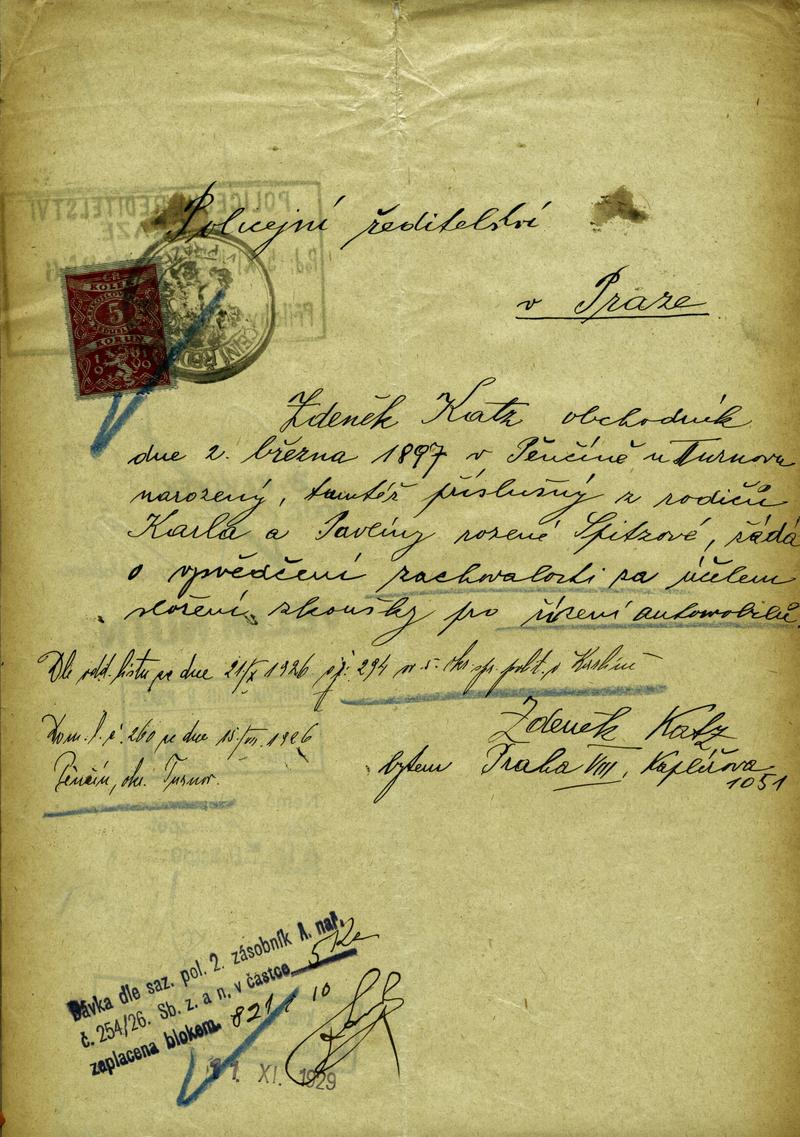 Policejní ředitelství
v Praze
5
KORUN
Zdeněk Katz obchodník
dne 2. března 1897 v Pěnčíně u Turnova
narozený, tamtéž příslušný z rodičů
Karla a Pavlíny rozené Spitzové, žádá
o vysvědčení zachovalosti za účelem
složení zkoušky pro řízení automobilů.
Dle odd. listu ze dne 21/X 1926 čj. 294
Dom. l. č. 260 ze dne 15./VII. 1926
Pěnčín, okr. Turnov.
Zdeněk Katz
bytem Praha VIII, Kaplířova
1051
Dávka dle saz. pol. 2. zásobník A. nař.
č. 254/26. Sb. z. a n. v částce 5 Kč
zaplacena blokem. 821 / 10
XI. 1929